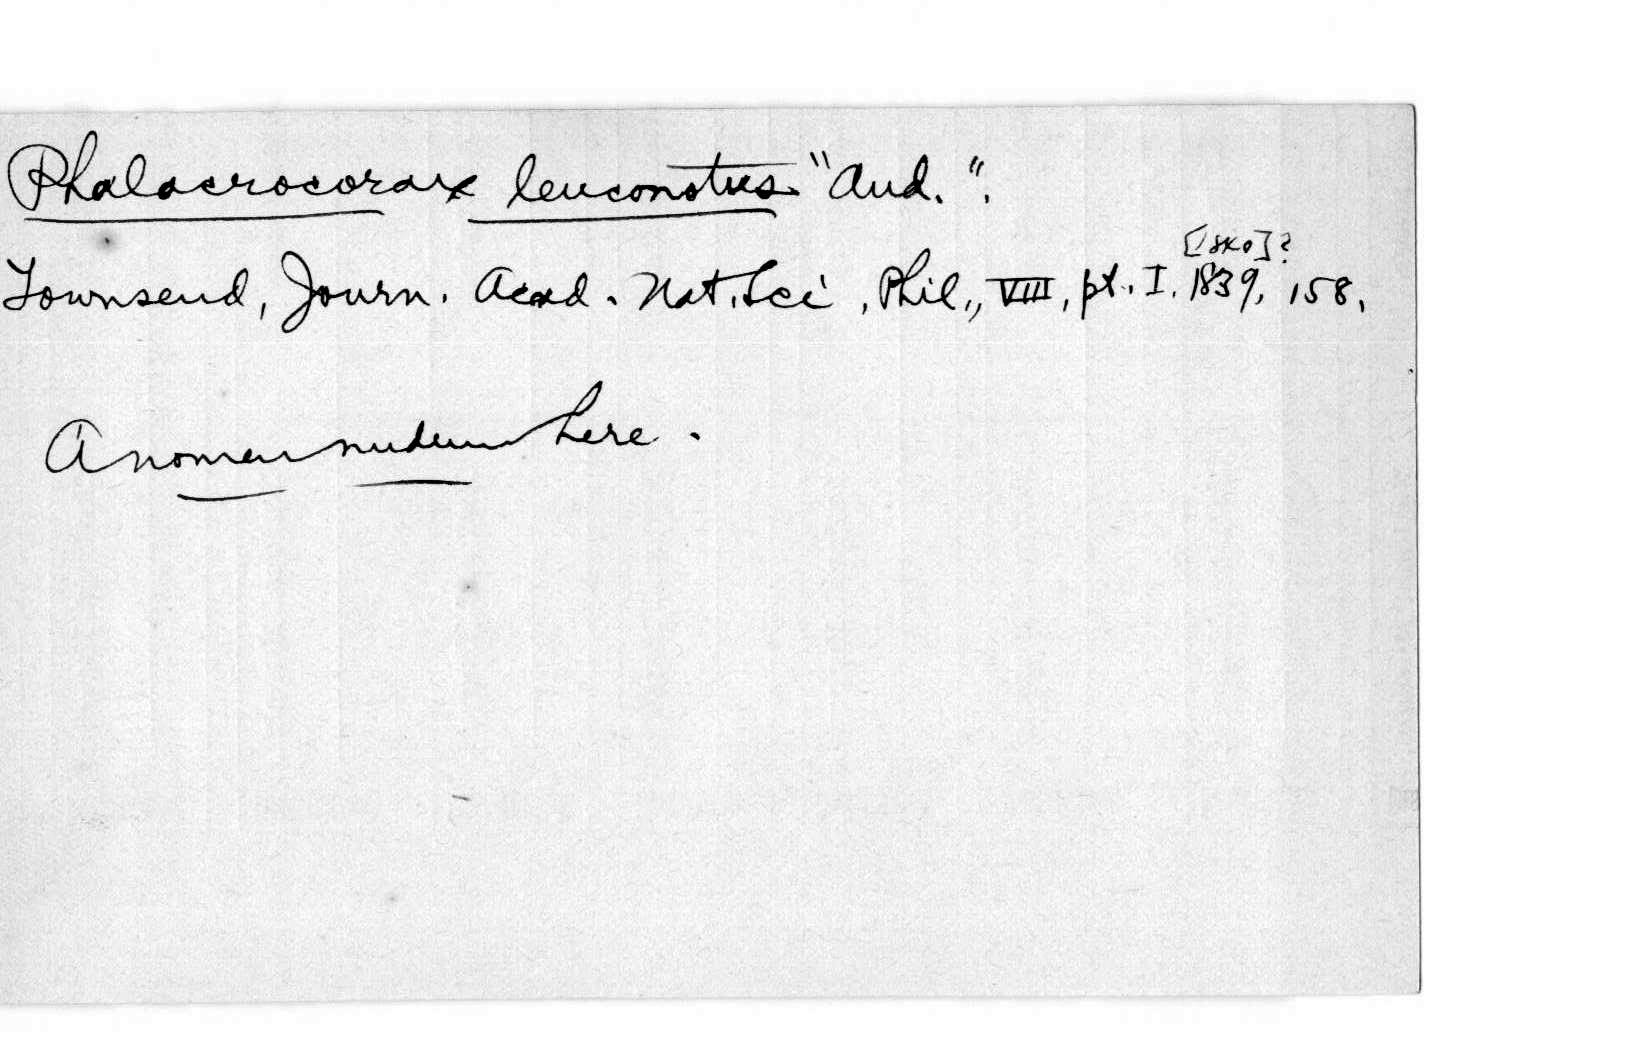 Phalacrocorax leuconotus "Aud.".
[1840]?
Townsend, Journ. Acad. Nat. Sci, Phil., VIII, pt. I, 1839, 158.
A nomen nudum here.